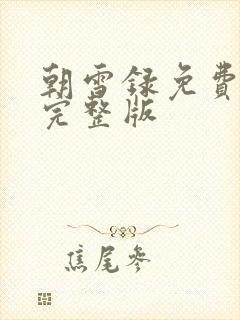 朝雪録免費
完整版
焦尾參